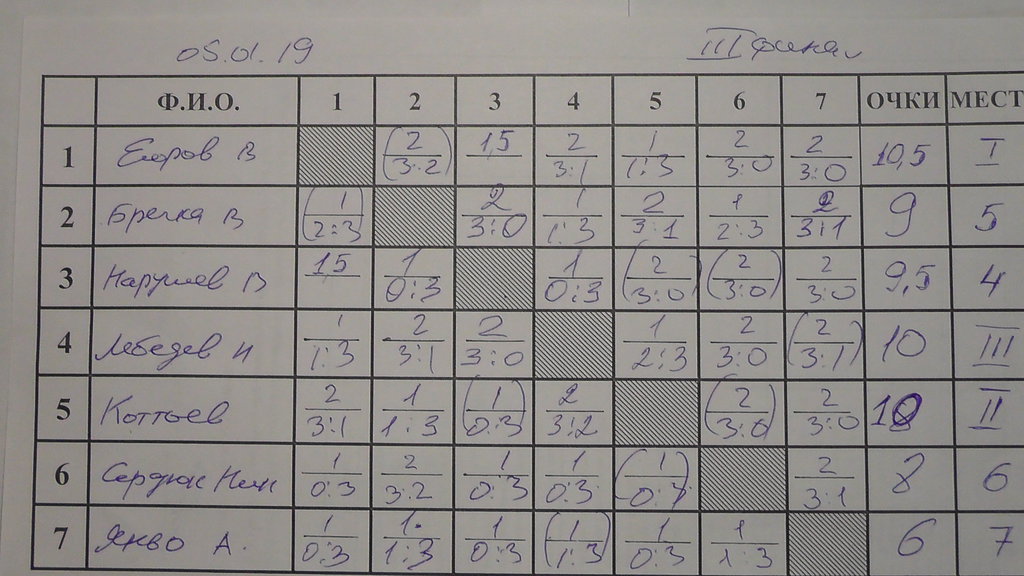 05.01.19 III финал
Ф.И.О. 1 2 3 4 5 6 7 ОЧКИ МЕСТ
1 Егоров В (2 3:2) 1,5 2 3:1 1 1:3 2 3:0 2 3:0 10,5 I
2 Бречка В (1 2:3) 2 3:0 1 1:3 2 3:1 1 2:3 2 3:1 9 5
3 Нарушев В 1,5 1 0:3 1 0:3 (2 3:0) (2 3:0) 2 3:0 9,5 4
4 Лебедев И 1 1:3 2 3:1 2 3:0 1 2:3 2 3:0 (2 3:1) 10 III
5 Коттоев 2 3:1 1 1:3 (1 0:3) 2 3:2 (2 3:0) 2 3:0 10 II
6 Сердюк 1 0:3 2 3:2 1 0:3 1 0:3 (1 0:3) 2 3:1 8 6
7 Янво А. 1 0:3 1 1:3 1 0:3 (1 1:3) 1 0:3 1 1:3 6 7